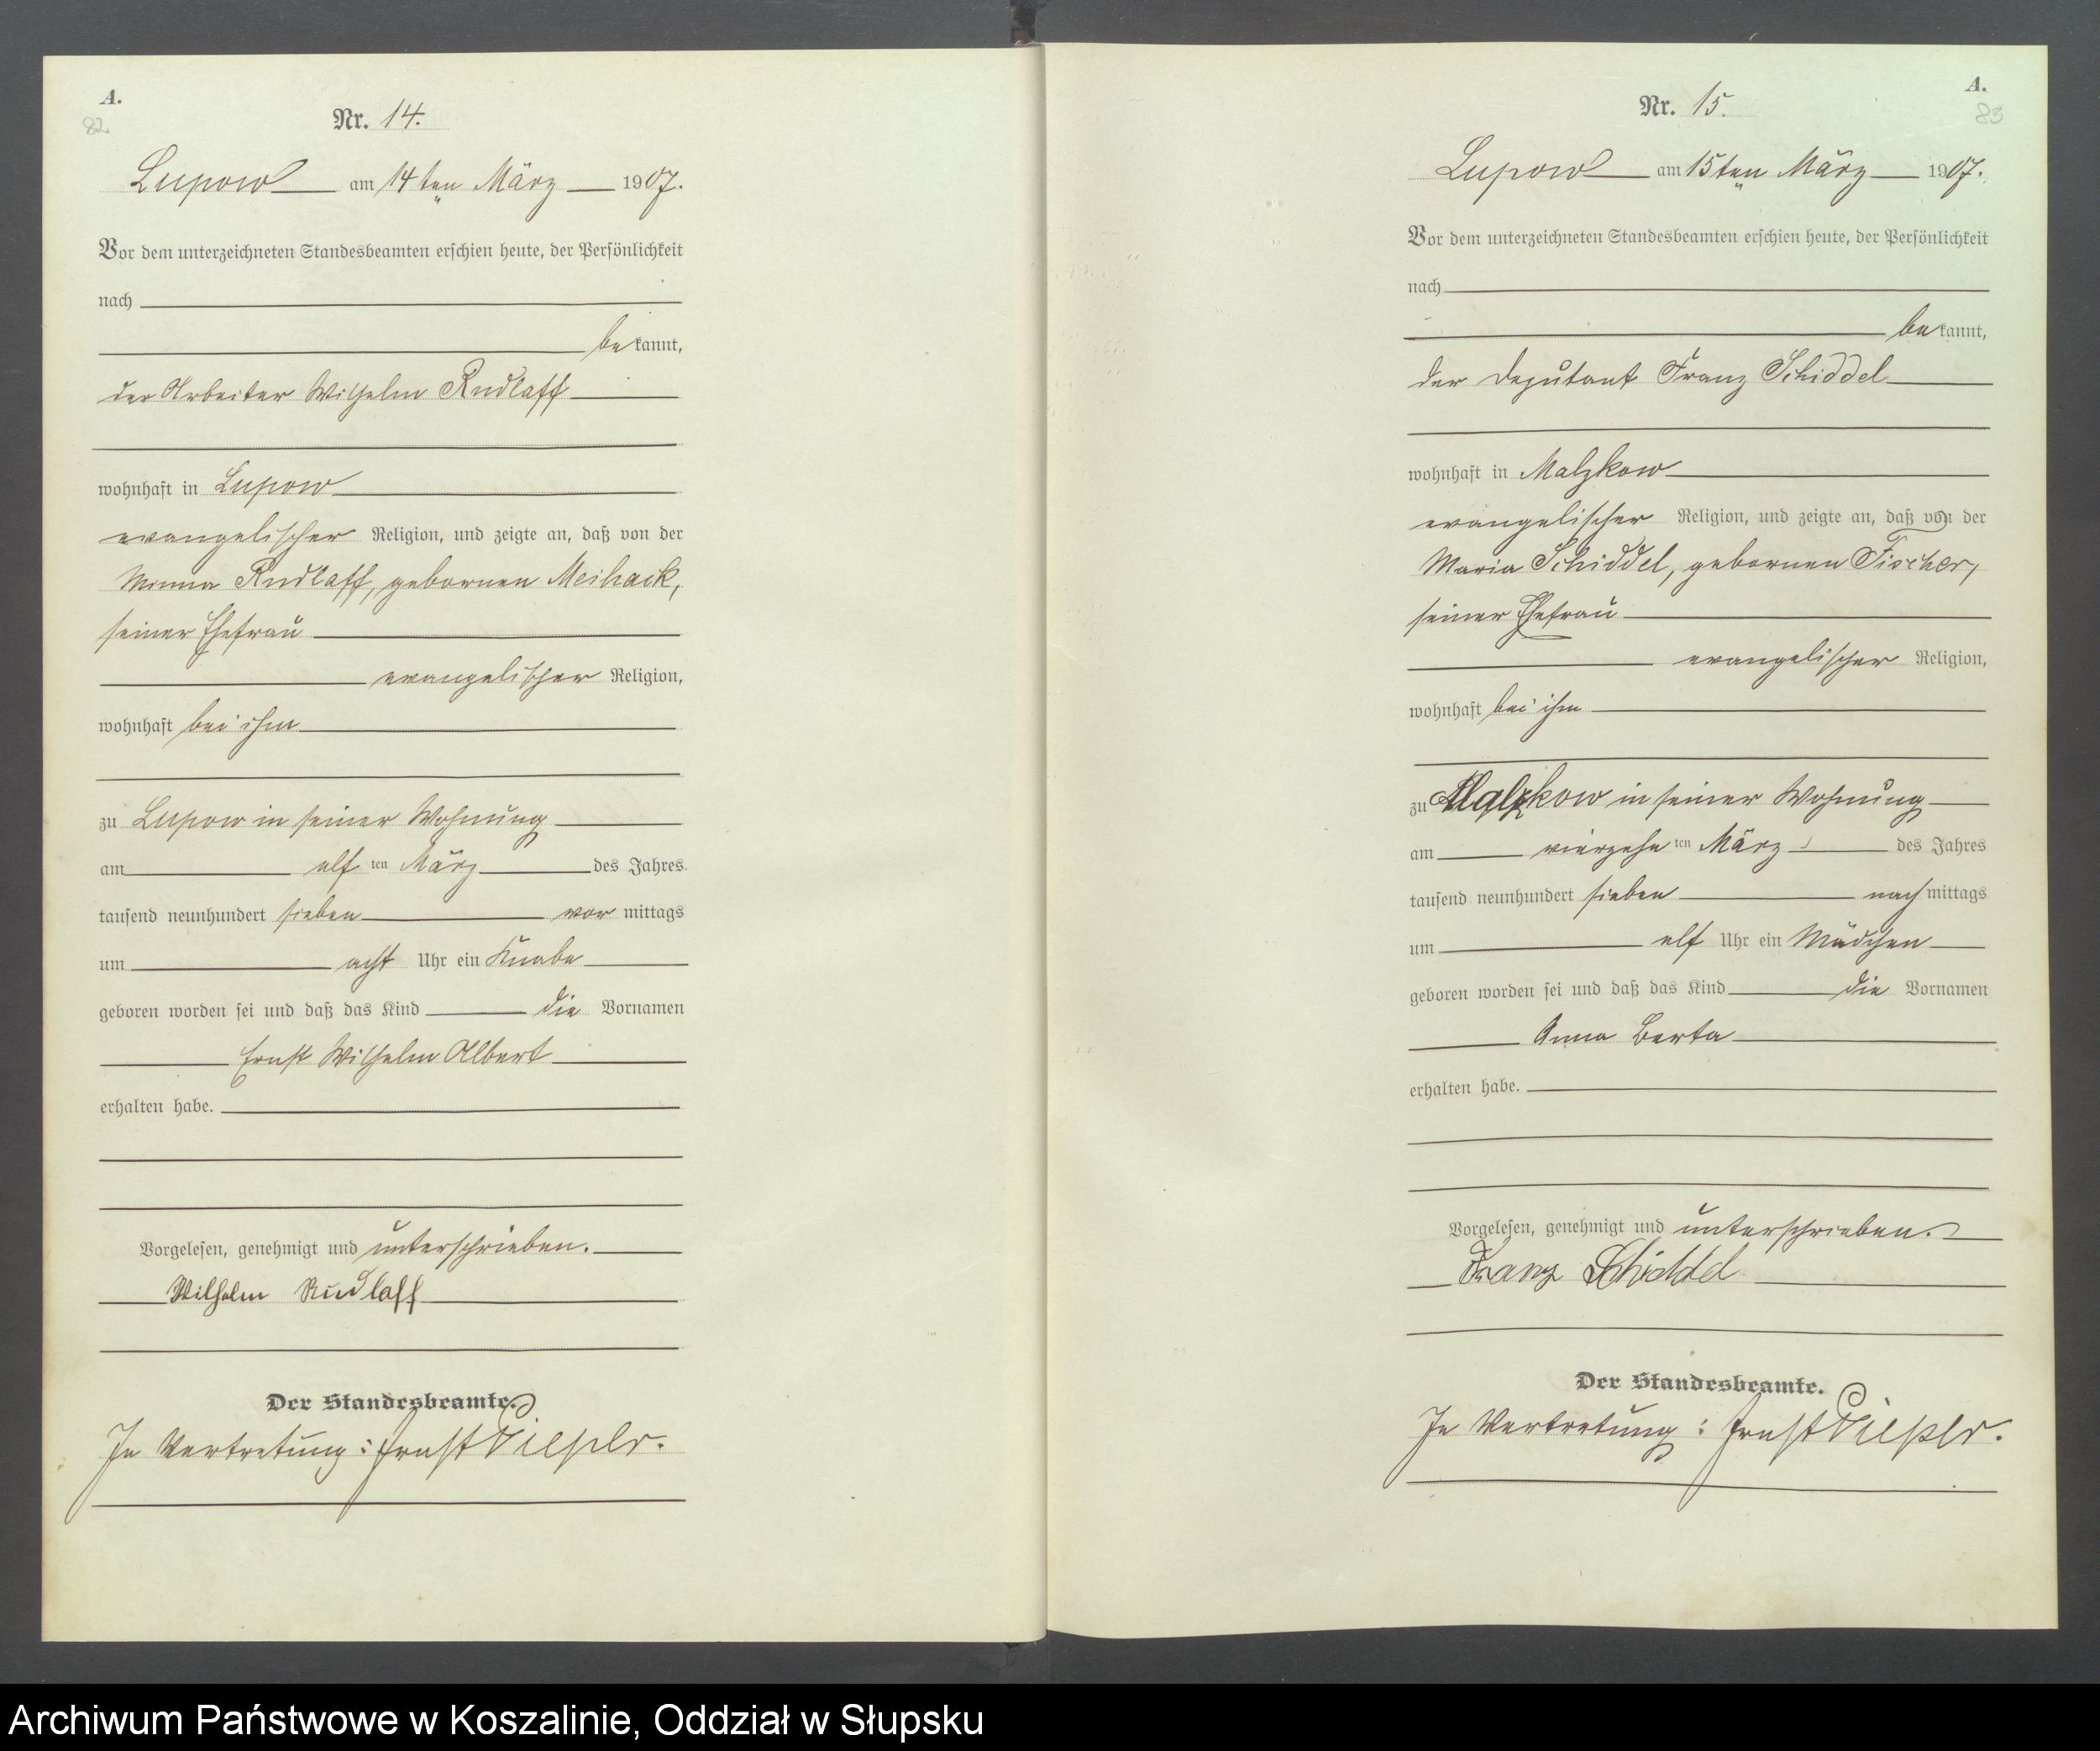 A.
82
Nr. 14.
Lupow am 14ten März 1907.
Vor dem unterzeichneten Standesbeamten erschien heute, der Persönlichkeit
nach
bekannt,
der Arbeiter Wilhelm Rudlaff
wohnhaft in Lupow
evangelischer Religion, und zeigte an, daß von der
Minna Rudlaff, gebornen Meihack,
seiner Ehefrau
evangelischer Religion,
wohnhaft bei ihm
zu Lupow in seiner Wohnung
am elf ten März des Jahres
tausend neunhundert sieben vor mittags
um acht Uhr ein Knabe
geboren worden sei und daß das Kind die Vornamen
Ernst Wilhelm Albert
erhalten habe.
Vorgelesen, genehmigt und unterschrieben.
Wilhelm Rudlaff
Der Standesbeamte.
In Vertretung: Ernst Pieper.
A.
83
Nr. 15.
Lupow am 15ten März 1907.
Vor dem unterzeichneten Standesbeamten erschien heute, der Persönlichkeit
nach
bekannt,
der Deputant Franz Schiddel
wohnhaft in Malzkow
evangelischer Religion, und zeigte an, daß von der
Maria Schiddel, gebornen Fischer,
seiner Ehefrau
evangelischer Religion,
wohnhaft bei ihm
zu Malzkow in seiner Wohnung
am vierzehn ten März des Jahres
tausend neunhundert sieben nach mittags
um elf Uhr ein Mädchen
geboren worden sei und daß das Kind die Vornamen
Anna Berta
erhalten habe.
Vorgelesen, genehmigt und unterschrieben.
Franz Schiddel
Der Standesbeamte.
In Vertretung: Ernst Pieper.
Archiwum Państwowe w Koszalinie, Oddział w Słupsku